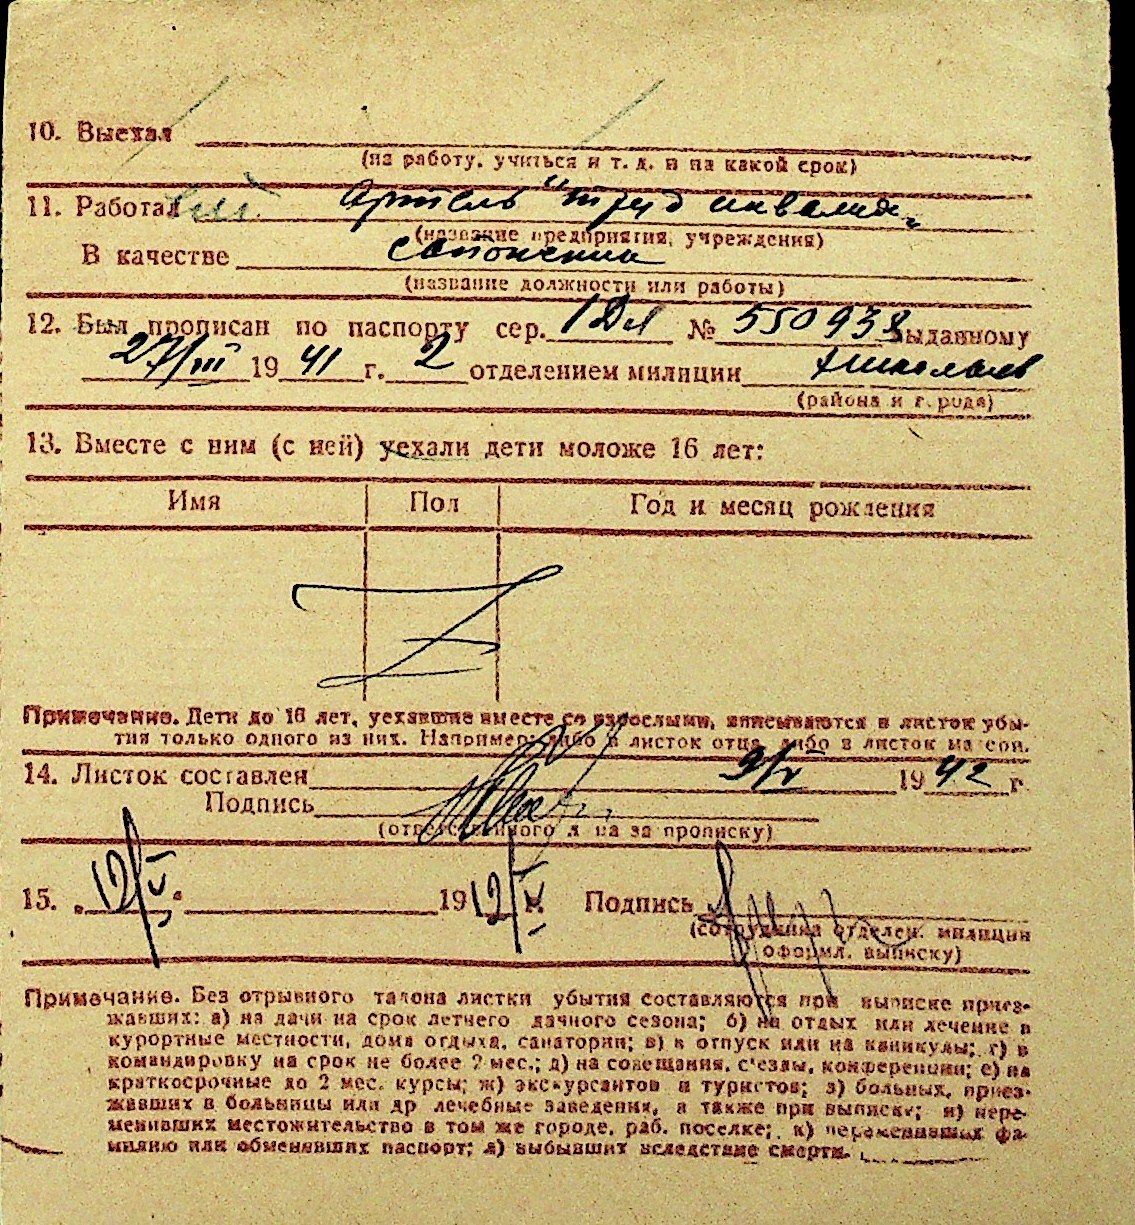 10. Выехал
(на работу, учиться и т. д. и на какой срок)
11. Работал Артель "труд инвалид"
(название предприятия, учреждения)
В качестве
(название должности или работы)
12. Был прописан по паспорту сер. № 550938 выданному
27/III 1941 г. 2 отделением милиции Николаев
(района и города)
13. Вместе с ним (с ней) уехали дети моложе 16 лет:
Имя Пол Год и месяц рождения
Z
Примечание. Дети до 16 лет, уехавшие вместе со взрослыми, вписываются в листок убы-
тия только одного из них. Например: либо в листок отца, либо в листок матери.
14. Листок составлен 9/V 1942 г
Подпись
(ответственного лица за прописку)
15. „12/V“ 19 12/V г. Подпись
(сотрудника отделен. милиции
оформл. выписку)
Примечание. Без отрывного талона листки убытия составляются при выписке приез-
жавших: а) на дачи на срок летнего дачного сезона; б) на отдых или лечение в
курортные местности, дома отдыха, санатории; в) в отпуск или на каникулы; г) в
командировку на срок не более 2 мес.; д) на совещания, с'езды, конференции; е) на
краткосрочные до 2 мес. курсы; ж) экскурсантов и туристов; з) больных, приез-
жавших в больницы или др лечебные заведения, а также при выписке; и) пере-
менивших местожительство в том же городе, раб. поселке; к) переменивших фа-
милию или обменявших паспорт; л) выбывших вследствие смерти.